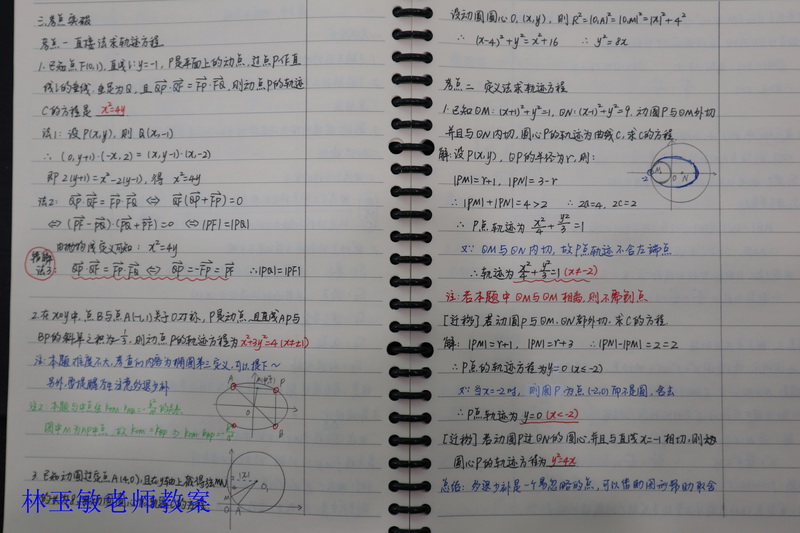 三.考点突破
考点一 直接法求轨迹方程
1.已知点F(0,1),直线l:y=-1,P是平面上的动点,过点P作直
线l的垂线,垂足为Q,且QP·QF=FP·FQ,则动点P的轨迹
C的方程是 x²=4y
法1: 设P(x,y),则Q(x,-1)
∴ (0,y+1)·(-x,2)=(x,y-1)·(x,-2)
即 2(y+1)=x²-2(y-1),得 x²=4y
法2: QP·QF=FP·FQ ⇔ QF(QP+FP)=0
⇔ (PF-PQ)·(PQ+PF)=0 ⇔ |PF|=|PQ|
由抛物线定义可知: x²=4y
错解
法3: QP·QF=FP·FQ ⇔ QP=-FP=PF ∴|PQ|=|PF|
2.在xoy中,点B与点A(-1,1)关于O对称,P是动点,且直线AP与
BP的斜率之积为-1/3,则动点P的轨迹方程为x²+3y²=4(x≠±1)
注:本题难度不大,考查的内容为椭圆第三定义,可以搜下~
A
P
O
B
3.已知动圆过定点A(4,0),且在y轴上截得弦MN
|x|
O₁
M
O
A
林玉敏老师教案
设动圆圆心O₁(x,y),则R²=|O₁A|²=|O₁M|²=|x|²+4²
∴ (x-4)²+y²=x²+16 ∴ y²=8x
考点二 定义法求轨迹方程
1.已知⊙M:(x+1)²+y²=1,⊙N:(x-1)²+y²=9,动圆P与⊙M外切
并且与⊙N内切,圆心P的轨迹为曲线C,求C的方程
解:设P(x,y),⊙P的半径为r,则:
-2 M O N
|PM|=r+1, |PN|=3-r
∴ |PM|+|PN|=4>2 ∴ 2a=4, 2c=2
∴ P点轨迹为 x²/4+y²/3=1
又∵ ⊙M与⊙N内切,故P点轨迹不含左端点
∴轨迹为 x²/4+y²/3=1 (x≠-2)
注:若本题中⊙M与⊙N相离,则不需剔点
[迁移]若动圆P与⊙M,⊙N都外切,求C的方程
解: |PM|=r+1, |PN|=r+3 ∴ |PN|-|PM|=2=2
∴P点的轨迹方程为y=0 (x≤-2)
又∵当x=-2时, 则圆P为点(-2,0)而不是圆,舍去
∴P点轨迹为 y=0 (x<-2)
[迁移]若动圆P过⊙N的圆心,并且与直线x=-1相切,则动
圆心P的轨迹方程为y²=4x
总结: 多退少补是一个易忽略的点,可以借助图形帮助取舍